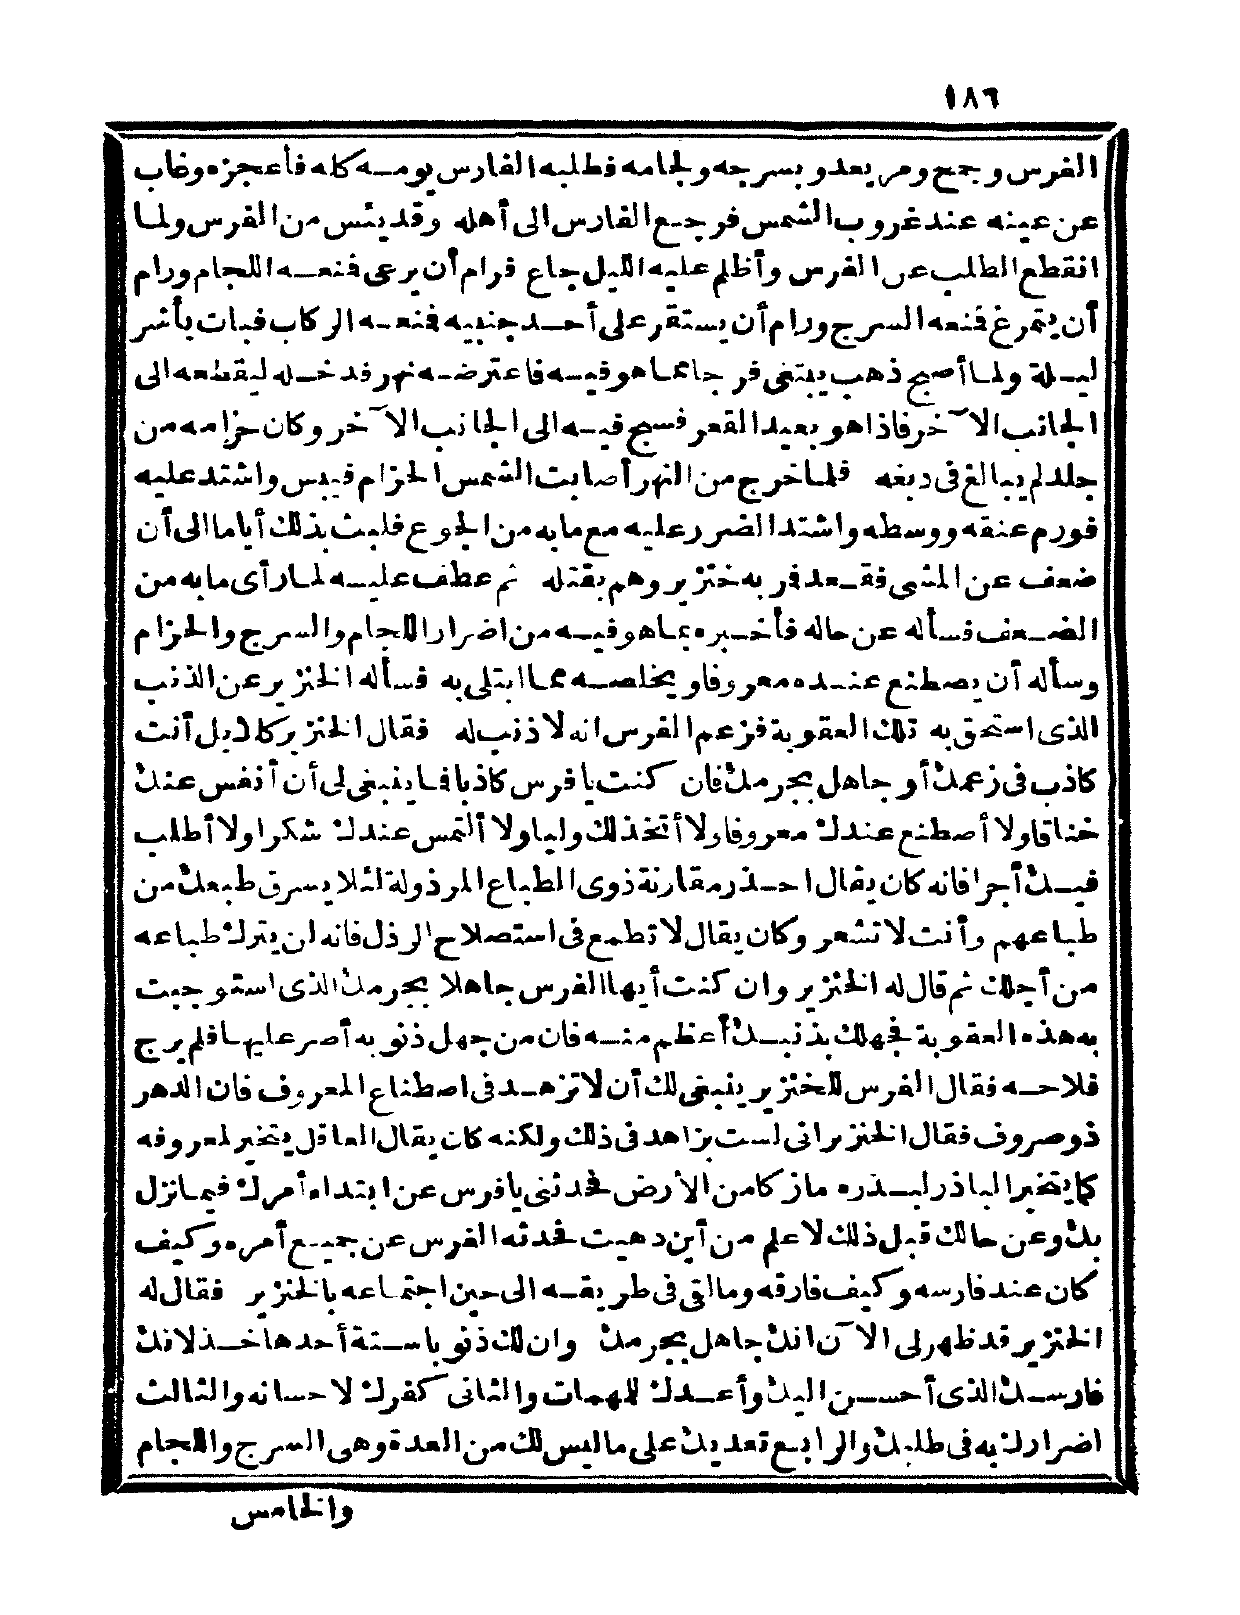 ١٨٦
الفرس وجمح ومر يعدو بسرجه ولجامه فطلبه الفارس يومـه كله فأعجزه وغاب
عن عينه عند غروب الشمس فرجع الفارس الى أهله وقد يئس من الفرس ولما
انقطع الطلب عن الفرس وأظلم عليه الليل جاع فرام أن يرعى فنعـه اللجام ورام
أن يتمرغ فنعه السرج ورام أن يستقر على أحـد جنبيه فنعـه الركاب فبات بأشر
ليـلة ولمـا أصبح ذهب يبتغي فرجا ممـا هو فيـه فاعترضـه نهر فدخـله ليقطعه الى
الجانب الآخر فاذا هو بعيد القعر فسبح فيـه الى الجانب الآخر وكان حزامه من
جلد لم يبالغ فى دبغه فلمـا خرج من النهر أصابت الشمس الحزام فيبس واشتد عليه
فورم عنقه ووسطه واشتد الضرر عليه مع ما به من الجوع فلبث بذلك أياما الى أن
ضعف عن المشى فقـعد فر به خنزير وهم بقتله ثم عطف عليـه لمـا رأى ما به من
الضـعف فسأله عن حاله فأخـبره بمـا هو فيـه من اضرار اللجام والسرج والحزام
وسأله أن يصطنع عنـده معروفا ويخلصـه ممـا ابتلى به فسأله الخنزير عن الذنب
الذى استحق به تلك العقوبة فزعم الفرس انه لا ذنب له فقال الخنزير كلا بل أنت
كاذب فى زعمك أو جاهل بجرمك فان كنت يا فرس كاذبا فـا ينبغى لى أن أنفس عنك
خناقا ولا أصطنع عندك معروفا ولا أتخذك وليا ولا ألتمس عندك شكرا ولا أطلب
فيـك أجرا فانه كان يقال احـذر مقارنة ذوى الطباع المرذولة لئلا يسرق طبعك من
طباعهم وأنت لا تشعر وكان يقال لا تطمع فى استصلاح الرذل فانه لن يترك طباعه
من أجلك ثم قال له الخنزير وان كنت أيها الفرس جاهلا بجرمك الذى استوجبت
به هذه العقوبة فجهلك بذنبـك أعظم منـه فان من جهل ذنوبه أصر عليهـا فلم يرج
فلاحـه فقال الفرس للخنزير ينبغى لك أن لا تزهـد فى اصطناع المعروف فان الدهر
ذو صروف فقال الخنزير انى لست بزاهد فى ذلك ولكنه كان يقال العاقل يتخير لمعروفه
كما يتخير الباذر لبـذره ما زكا من الأرض فحدثنى يا فرس عن ابتداء أمرك فيمـا نزل
بك وعن حالك قبل ذلك لا علم من أين دهيت فحدثه الفرس عن جميع أمره وكيف
كان عند فارسه وكيف فارقه وما لقى فى طريقـه الى حين اجتمـاعه بالخنزير فقال له
الخنزير قد ظهر لى الآن انك جاهل بجرمك وان لك ذنوبا سـتة أحدها خـذلانك
فارسـك الذى أحسـن اليك وأعـدك للمهمات والثانى كفرك لاحسانه والثالث
اضرارك به فى طلبك والرابع تعديك على ما ليس لك من العدة وهى السرج واللجام
والخامس